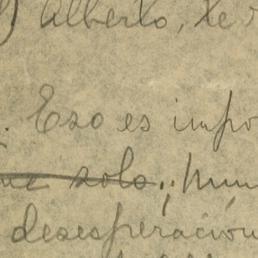 ) Alberto, te
. Eso es impo
solo.; Mun
desesperación